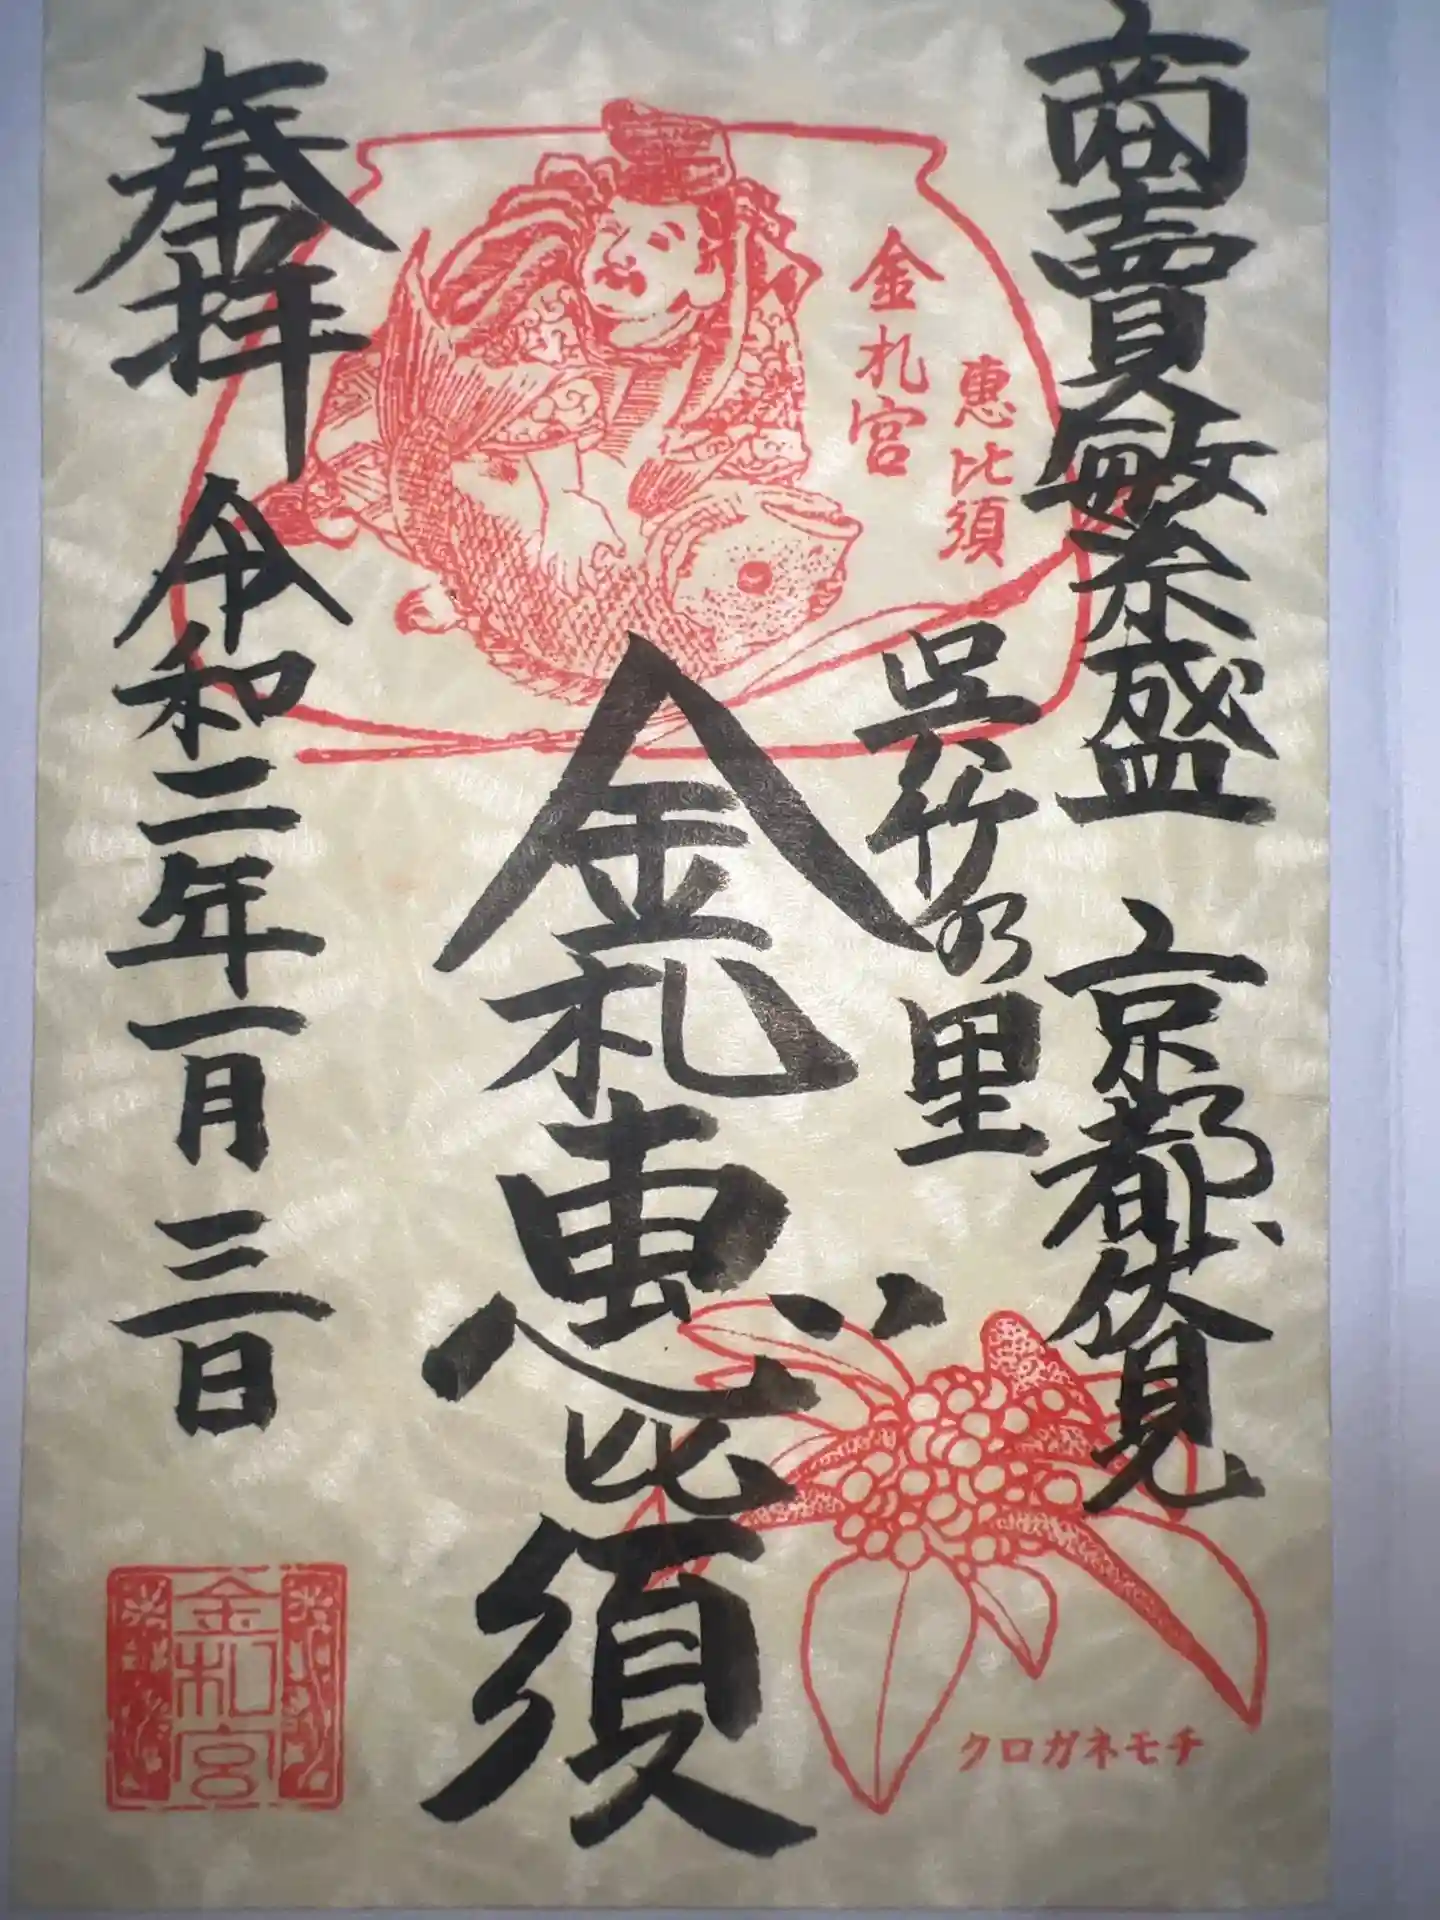 商賣繁盛 京都伏見
呉竹の里
金札恵比須
奉拝 令和二年一月三日
恵比須
金札宮
クロガネモチ
金札宮